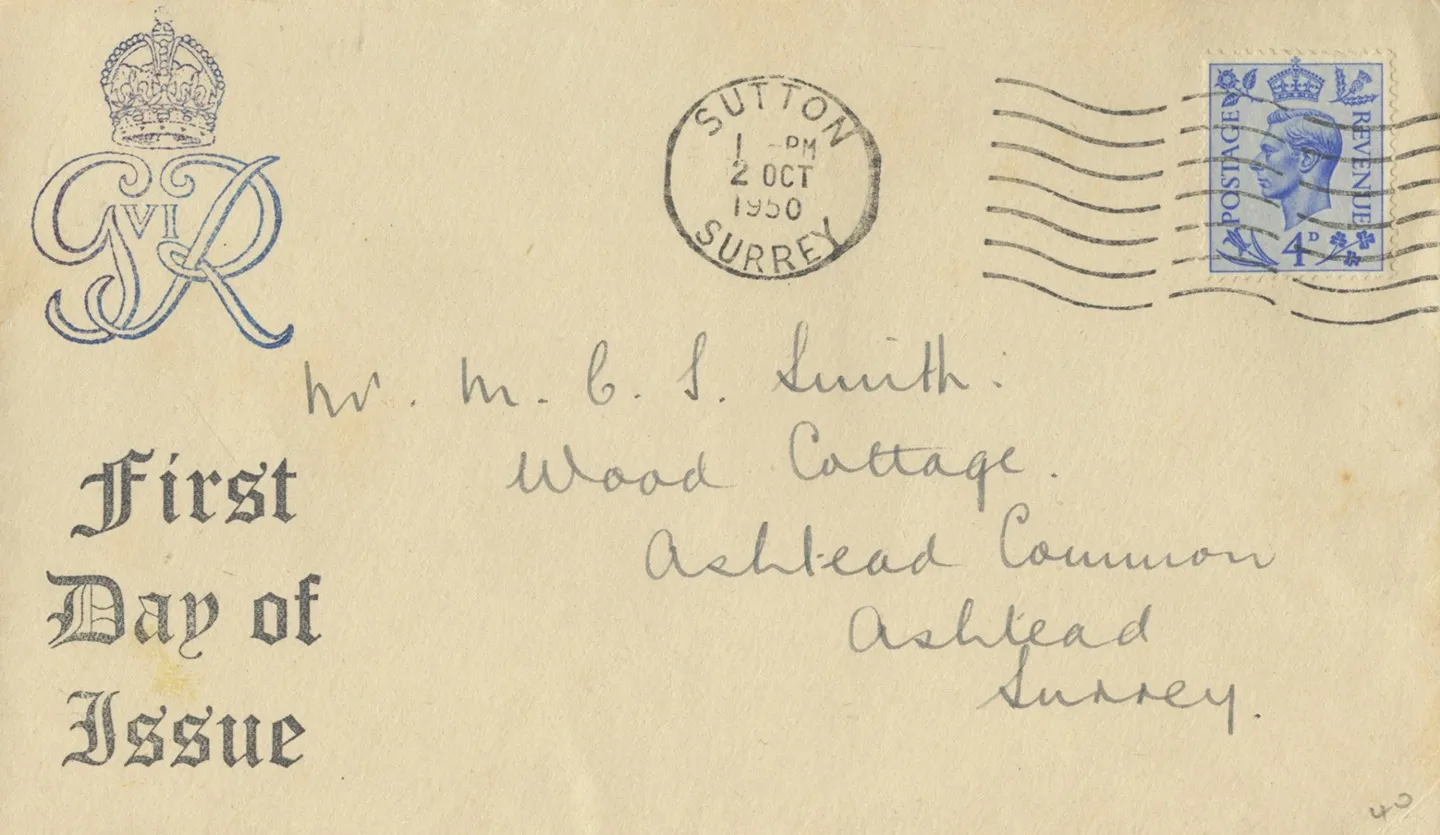 GVIR
SUTTON
1 - PM
2 OCT
1950
SURREY
POSTAGE
REVENUE
4D
Mr. M. C. S. Smith.
Wood Cottage.
Ashtead Common
Ashtead
Surrey.
First
Day of
Issue
40